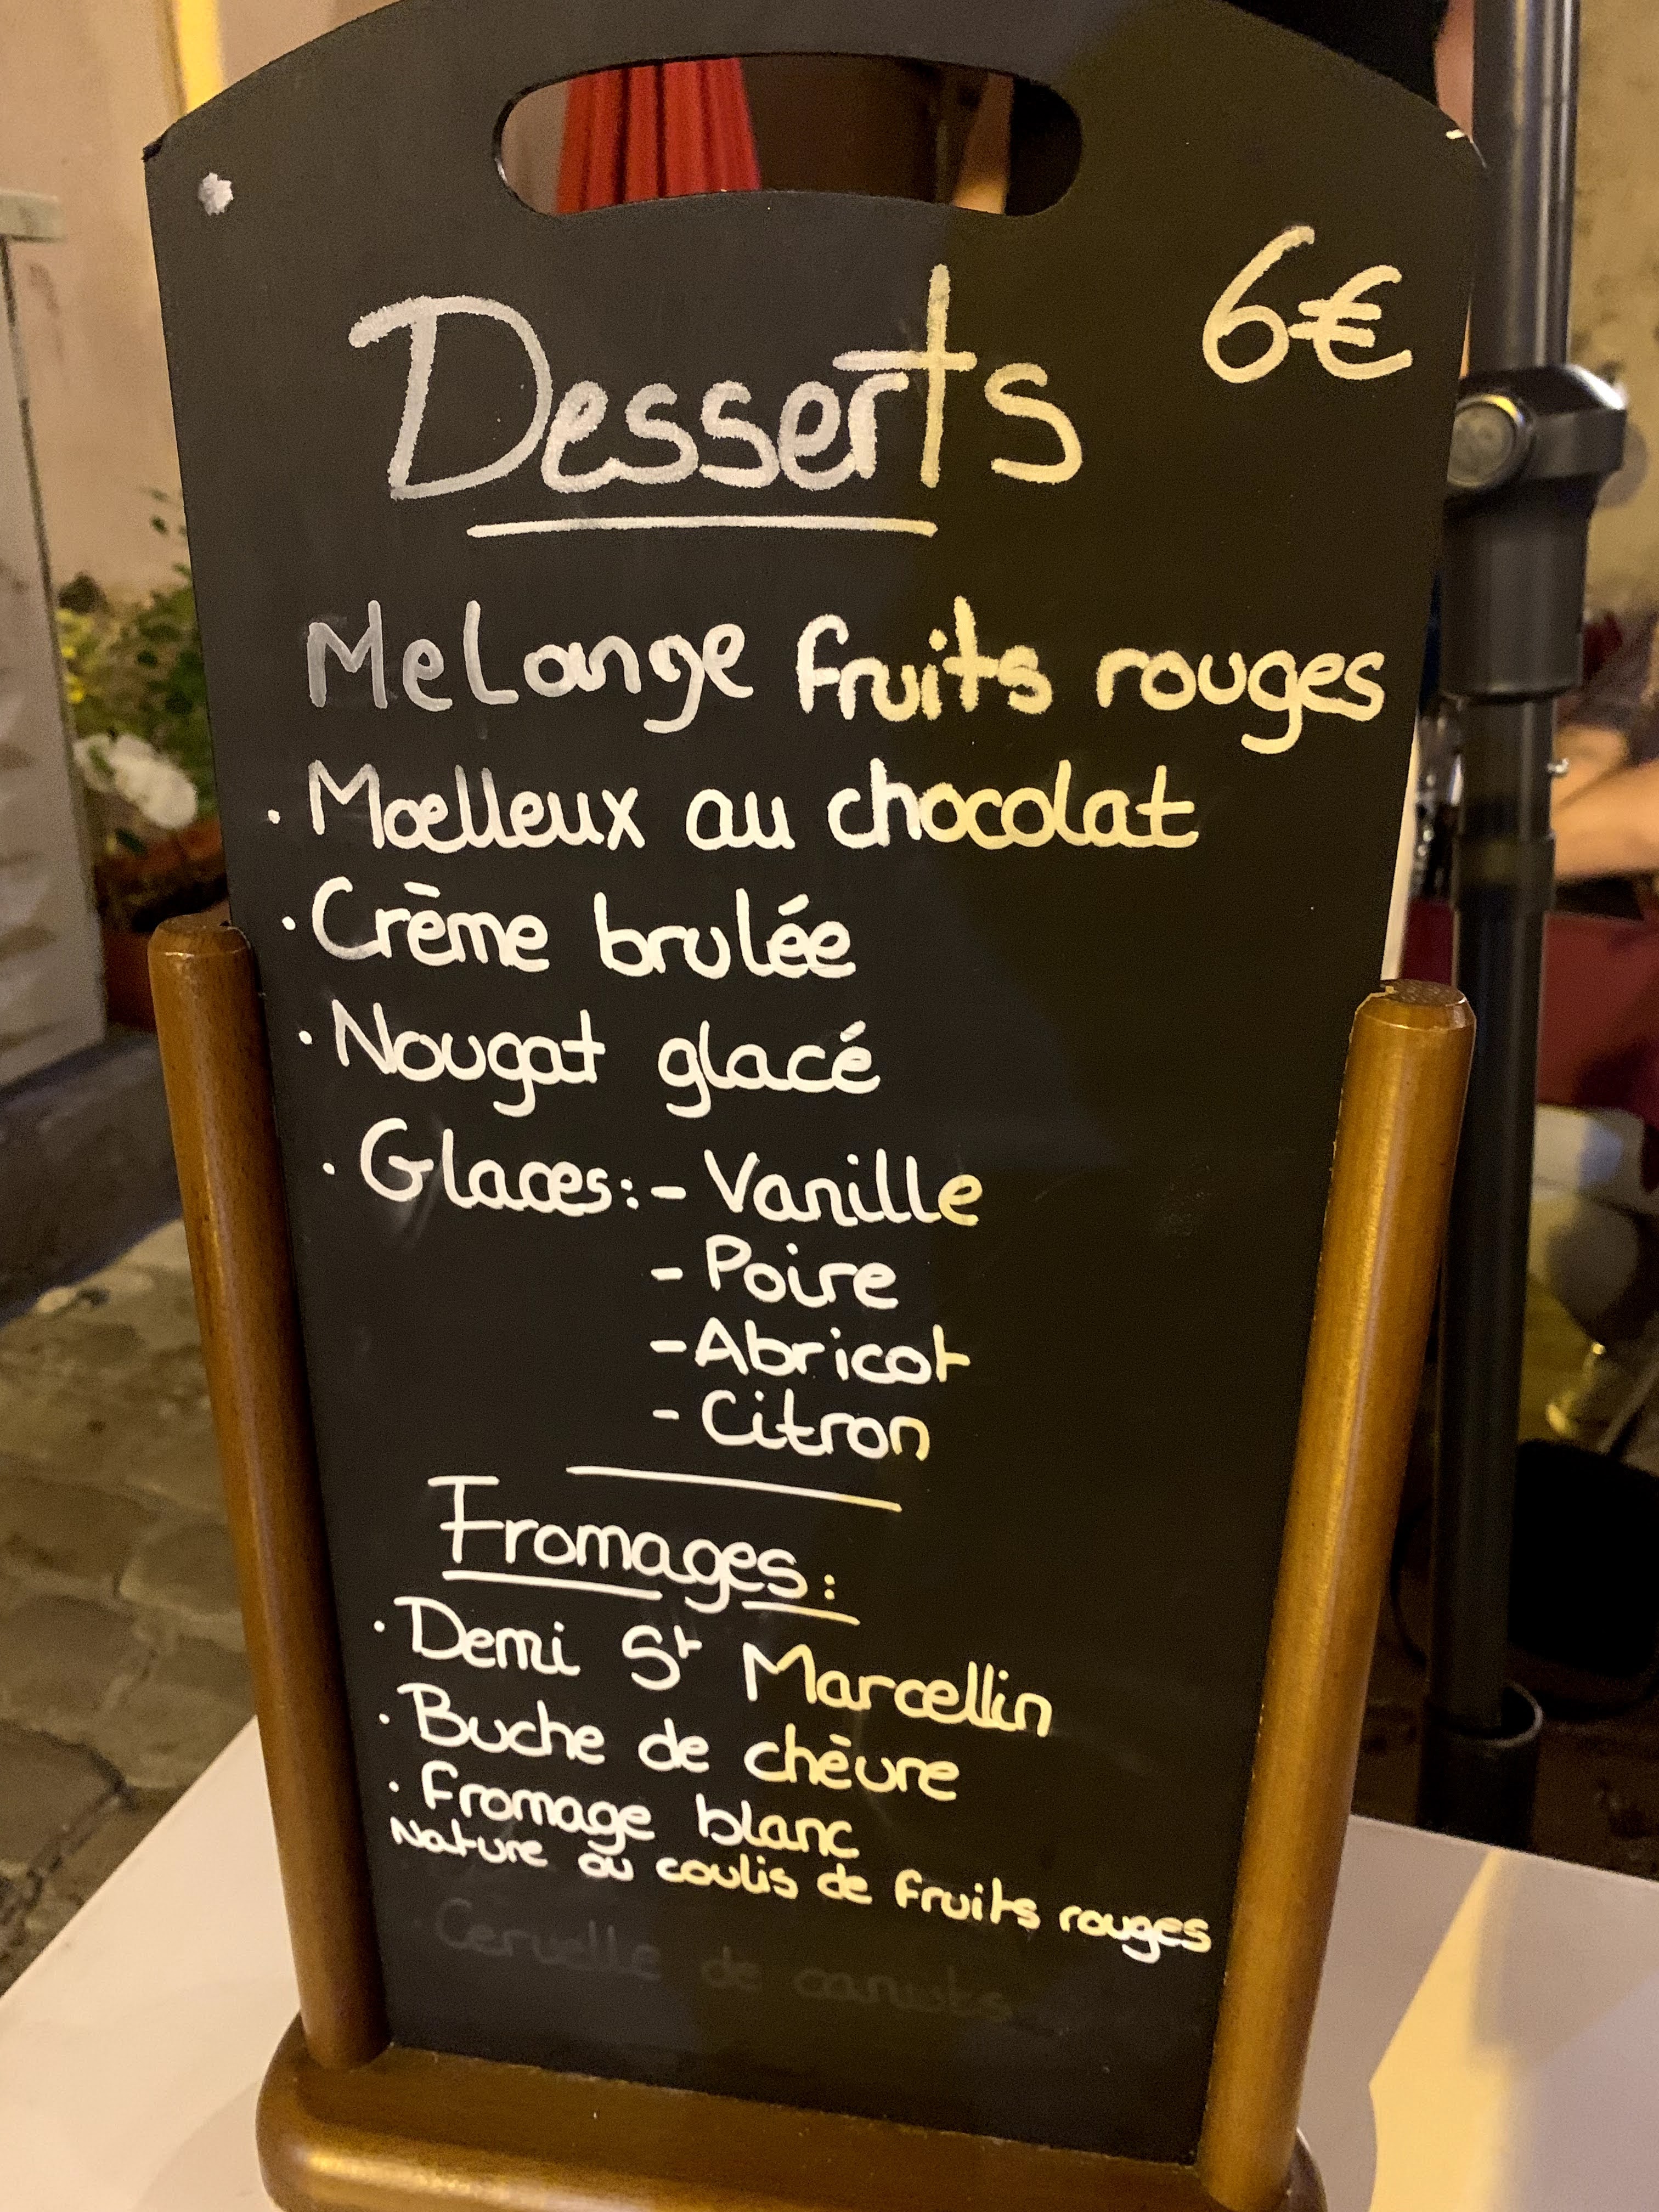 6€
Desserts
MeLange fruits rouges
· Mœlleux au chocolat
· Crème brulée
· Nougat glacé
· Glaces: - Vanille
- Poire
- Abricot
- Citron
Fromages:
· Demi St Marcellin
· Buche de chèvre
· fromage blanc
Nature ou coulis de fruits rouges
Cervelle de canuts